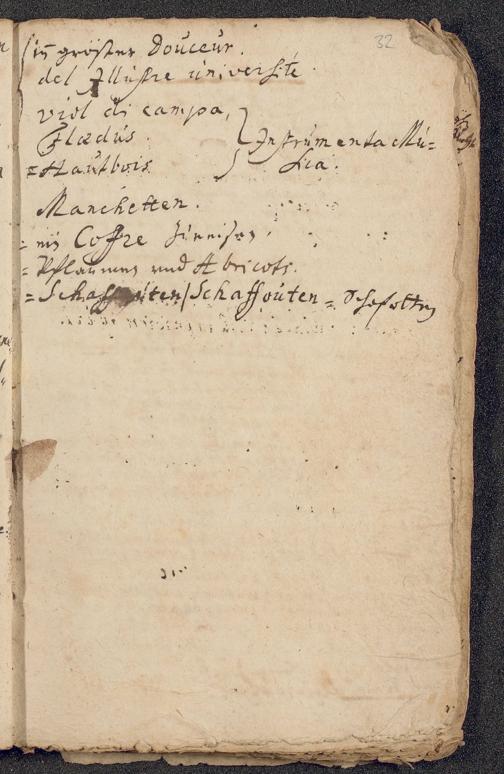 32
in großer Douceur.
del Illustre université.
viol di campa,
Flædus. } Instrumenta Mu=
= Hautbois. sica.
Manchetten.
= ein Coffre
= Pflaumen und Abricots.
= Schaffouten / Schaffouten =